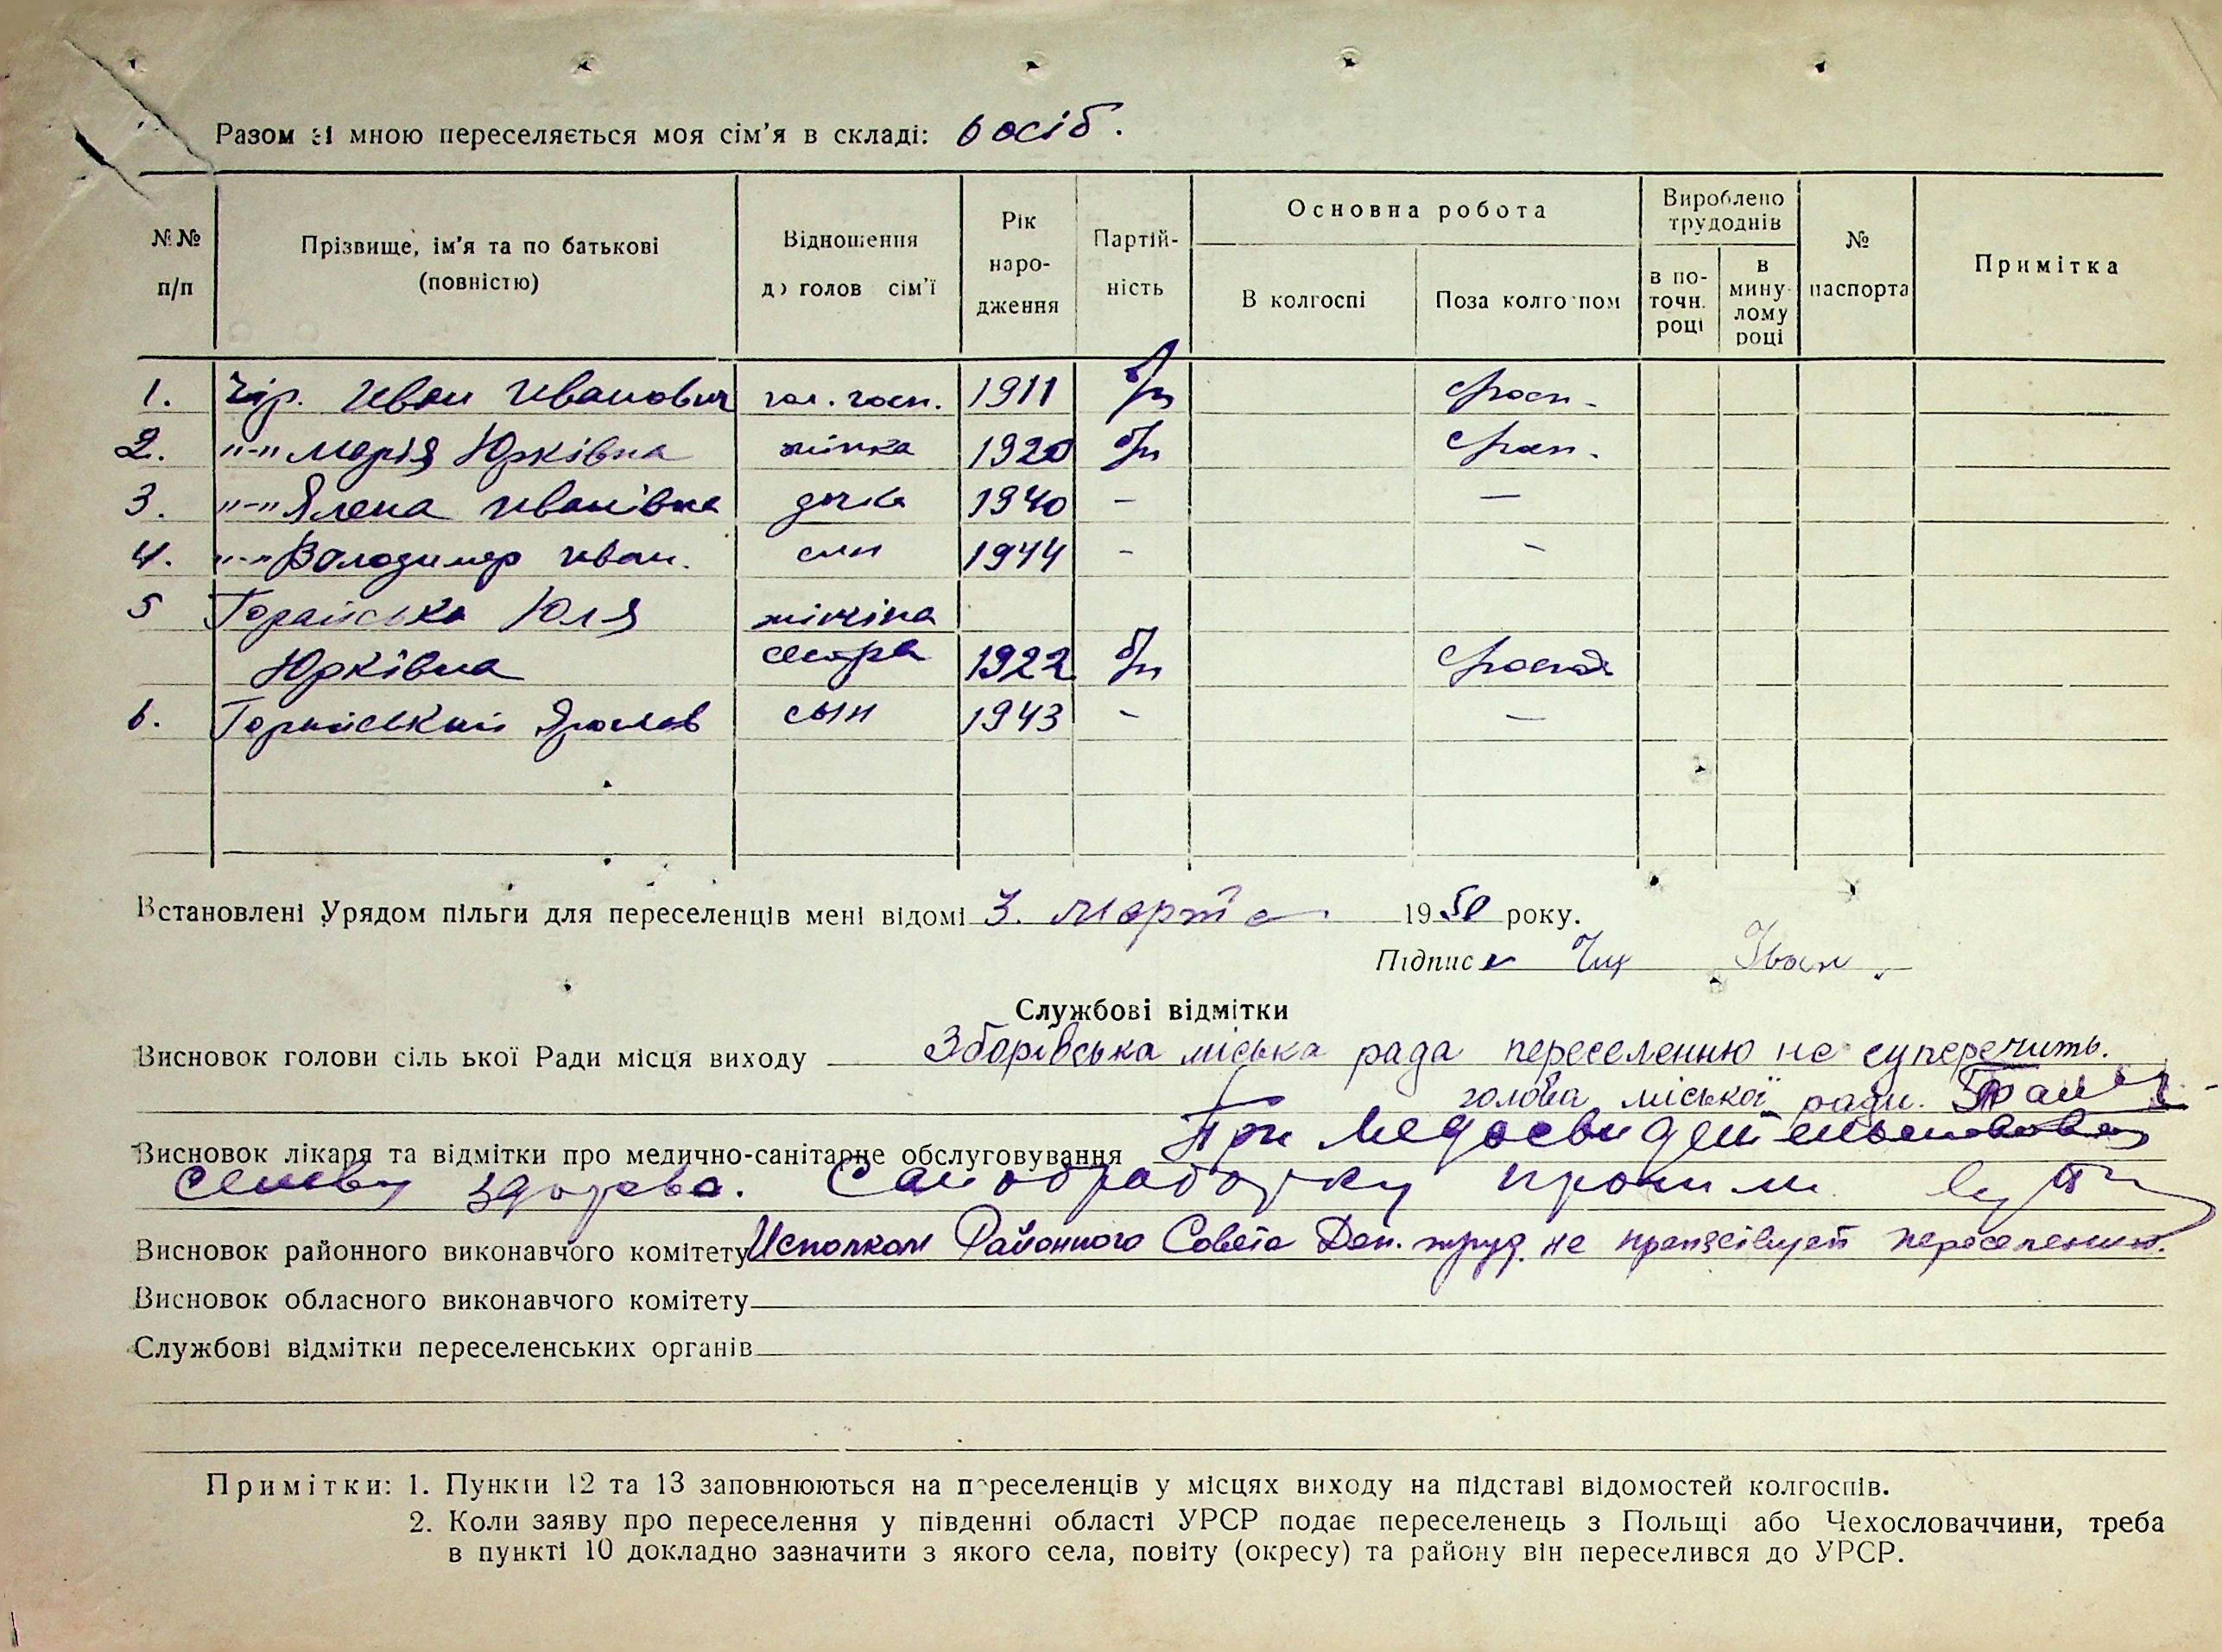 Разом зі мною переселяється моя сім'я в складі: 6 осіб.
№№ п/п
Прізвище, ім'я та по батькові (повністю)
Відношення до голов сім'ї
Рік народження
Партійність
Основна робота
В колгоспі
Поза колгоспом
Вироблено трудоднів
в поточн. році
в минулому році
№ паспорта
Примітка
1. Чір. Иван Иванович гол. госп. 1911 б/п
2. "-" Марія Юрківна жінка 1920 б/п
3. "-" Ялена Иванівна дочка 1940 - —
4. "-" Володимер Иван. син 1944 - —
5 Горайська Юля жінчіна
Юрківна сестра 1922 б/п
6. Горайський Ярослав сын 1943 - —
Встановлені Урядом пільги для переселенців мені відомі 3. марта 1950 року.
Підпис Чір Іван
Службові відмітки
Висновок голови сільської Ради місця виходу Зборівська міська рада переселенню не суперечить.
голова міської ради.
Висновок лікаря та відмітки про медично-санітарне обслуговування При медосвидетельствовании
семья здорова. Санобработку
Висновок районного виконавчого комітету Исполком Районного Совета Деп. труд. не препятствует переселению.
Висновок обласного виконавчого комітету
Службові відмітки переселенських органів
Примітки: 1. Пункти 12 та 13 заповнюються на переселенців у місцях виходу на підставі відомостей колгоспів.
2. Коли заяву про переселення у південні області УРСР подає переселенець з Польщі або Чехословаччини, треба
в пункті 10 докладно зазначити з якого села, повіту (окресу) та району він переселився до УРСР.